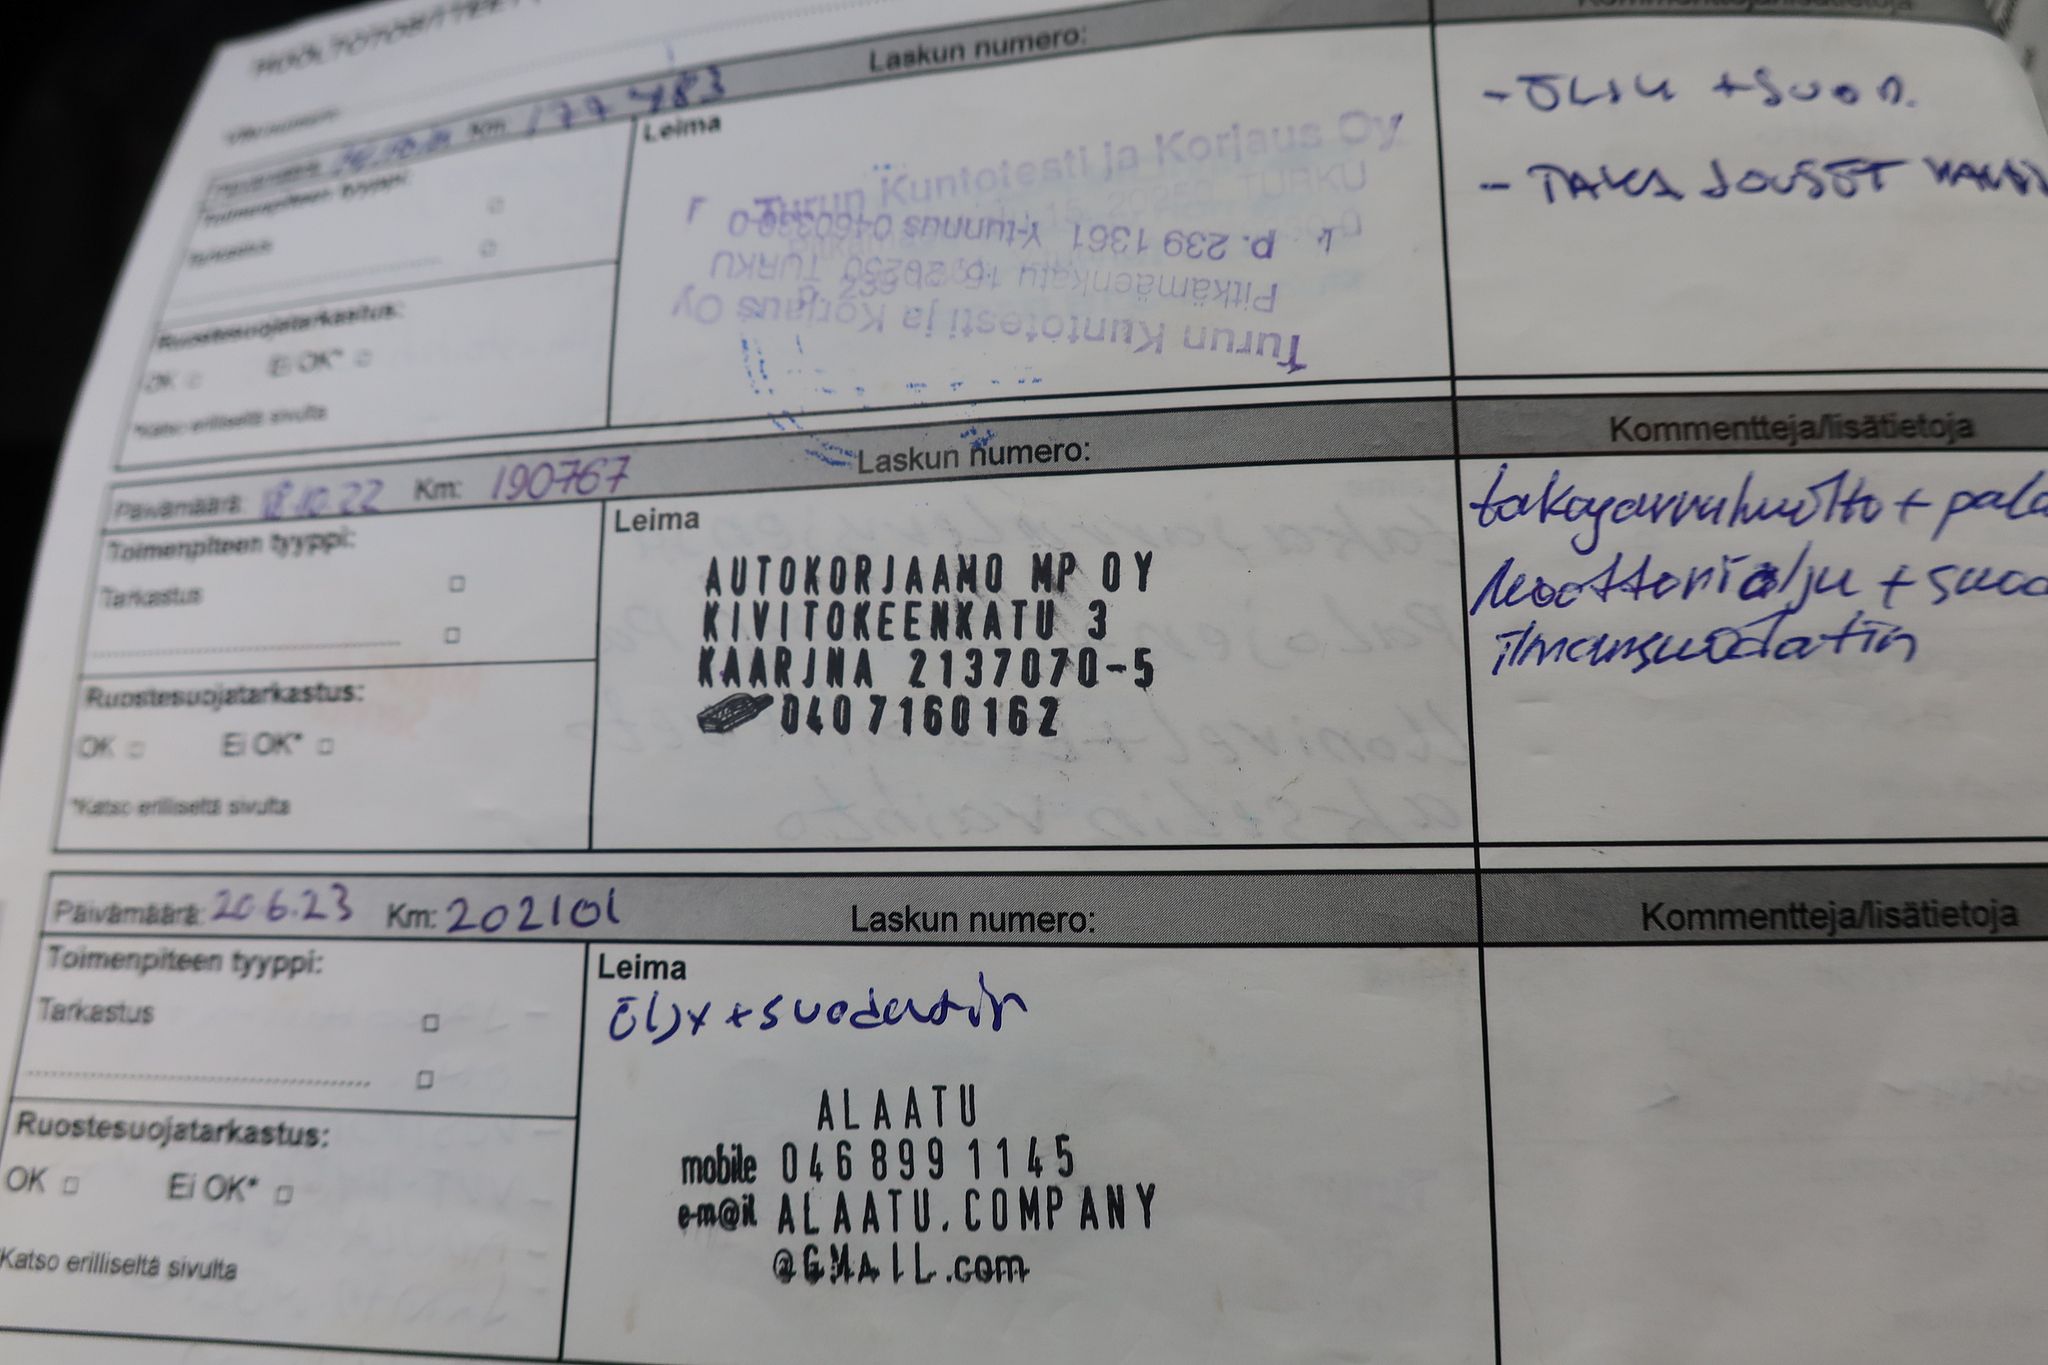 HUOLTOTOSITTEET
Laskun numero:
Kommentteja/lisätietoja
Km 177 483
Toimenpiteen tyyppi:
Tarkastus
Ruostesuojatarkastus:
OK Ei OK*
*Katso erilliseltä sivulta
Leima
Turun Kuntotesti ja Korjaus Oy
15, 20250 TURKU
Turun Kuntotesti ja Korjaus Oy
Pitkämäenkatu 15, 20250 TURKU
p. 239 1361 Y-tunnus
- ÖLJY + SUOD.
- TAKA JOUSET
Päivämäärä: 18.10.22 Km: 190767 Laskun numero:
Kommentteja/lisätietoja
Toimenpiteen tyyppi:
Tarkastus
Ruostesuojatarkastus:
OK Ei OK*
*Katso erilliseltä sivulta
Leima
AUTOKORJAAMO MP OY
KIVITOKEENKATU 3
KAARINA 2137070-5
0407160162
takajarruhuolto + pala
moottoriölju + suod
ilmansuodatin
Päivämäärä: 20.6.23 Km: 202101 Laskun numero:
Kommentteja/lisätietoja
Toimenpiteen tyyppi:
Tarkastus
Ruostesuojatarkastus:
OK Ei OK*
Katso erilliseltä sivulta
Leima
öljy + suodatin
ALAATU
mobile 046 899 1145
e-m@il ALAATU.COMPANY
@GMAIL.com